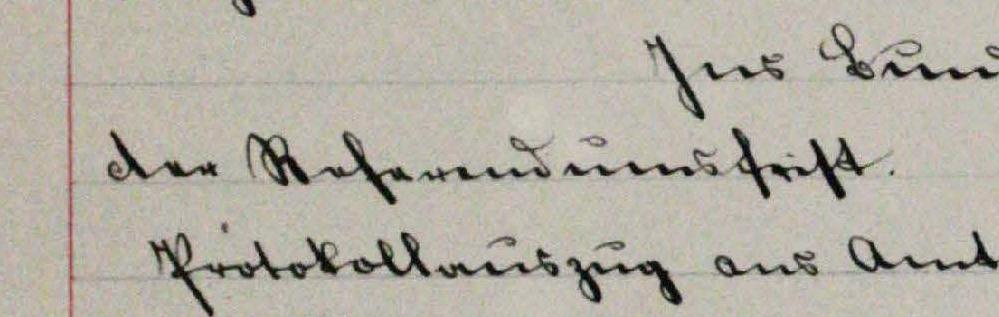 Ins Bun
der Referendumsfrist.
Protokollauszug ans Amt